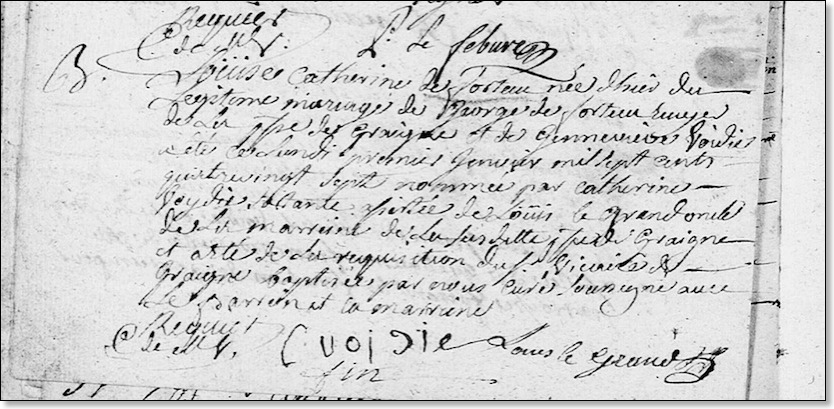 Requier
C. de MV. L. le febure
B. Loüise Catherine de Forteau née d'hier du
legitime mariage de George de forteau
de la psse de graigne et de Gennevieve Voidie
a été ce lundi premier Janvier mil sept cents
quatre vingt sept nommée par Catherine
Voydie sa tante assistée de Loüis le grand oncle
de la marraine de la susditte psse de Graigne
et a été de la requisition du Sr. Vicaire de
Graigne baptisée par nous Curé soussigné avec
le parrain et la marraine
Requier
C. de MV. C voidie Louis le Grand
fin